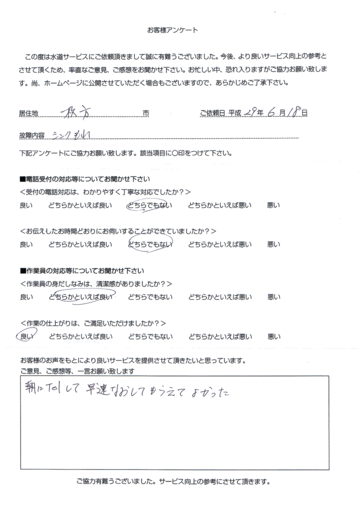 お客様アンケート
この度は水道サービスにご依頼頂きまして誠に有難うございました。今後、より良いサービス向上の参考と
させて頂くため、率直なご意見、ご感想をお聞かせ下さい。お忙しい中、恐れ入りますがご協力お願い致しま
す。尚、ホームページに公開させていただく場合もございますので、あらかじめご了承下さい。
居住地 枚方 市 ご依頼日 平成 29年 6月 18日
故障内容 シンクもれ
下記アンケートにご協力お願い致します。該当項目に〇印をつけて下さい。
■電話受付の対応等についてお聞かせ下さい
<受付の電話対応は、わかりやすく丁寧な対応でしたか？>
良い どちらかといえば良い どちらでもない どちらかといえば悪い 悪い
<お伝えしたお時間どおりにお伺いすることができていましたか？>
良い どちらかといえば良い どちらでもない どちらかといえば悪い 悪い
■作業員の対応等についてお聞かせ下さい
<作業員の身だしなみは、清潔感がありましたか？>
良い どちらかといえば良い どちらでもない どちらかといえば悪い 悪い
<作業の仕上がりは、ご満足いただけましたか？>
良い どちらかといえば良い どちらでもない どちらかといえば悪い 悪い
お客様のお声をもとにより良いサービスを提供させて頂きたいと思っています。
ご意見、ご感想等、一言お願い致します
朝にTELして早速なおしてもらえてよかった
ご協力有難うございました。サービス向上の参考にさせて頂きます。